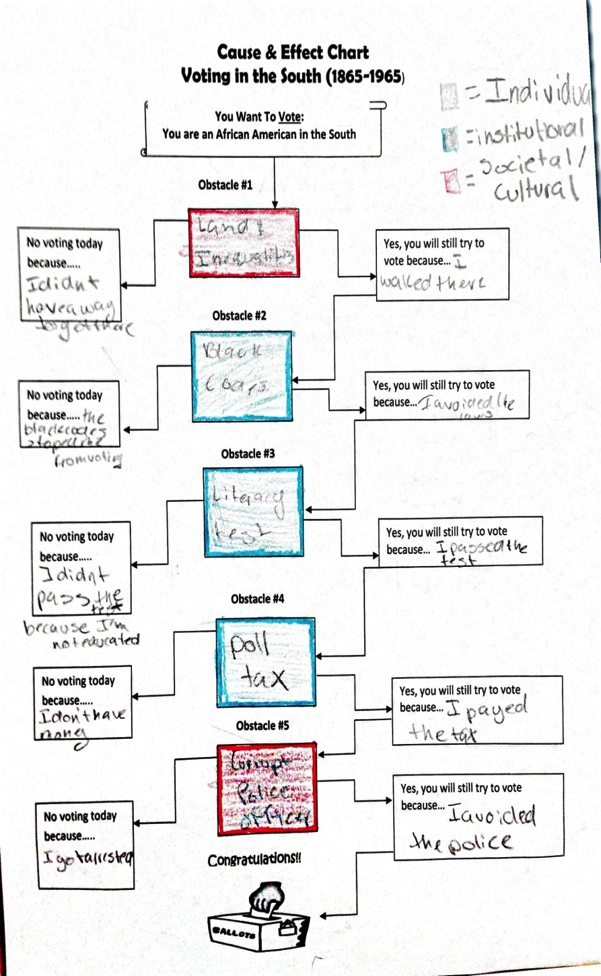 Cause & Effect Chart
Voting in the South (1865-1965)
= Individua
= institutional
= Societal/
Cultural
You Want To Vote:
You are an African American in the South
Obstacle #1
Land
No voting today
because.....
I didnt
have a way
to get there
Yes, you will still try to
vote because... I
walked there
Obstacle #2
Black
Codes
No voting today
because..... the
black codes
stoped me
from voting
Yes, you will still try to vote
because... I avoided the
laws
Obstacle #3
Literacy
test
No voting today
because.....
I didnt
pass the
test
because I'm
not educated
Yes, you will still try to vote
because... I passed the
test
Obstacle #4
poll
tax
No voting today
because.....
I don't have
money
Yes, you will still try to vote
because... I payed
the tax
Obstacle #5
Corrupt
Police
No voting today
because.....
I got arrested
Yes, you will still try to vote
because... I avoided
the police
Congratulations!!
BALLOTS